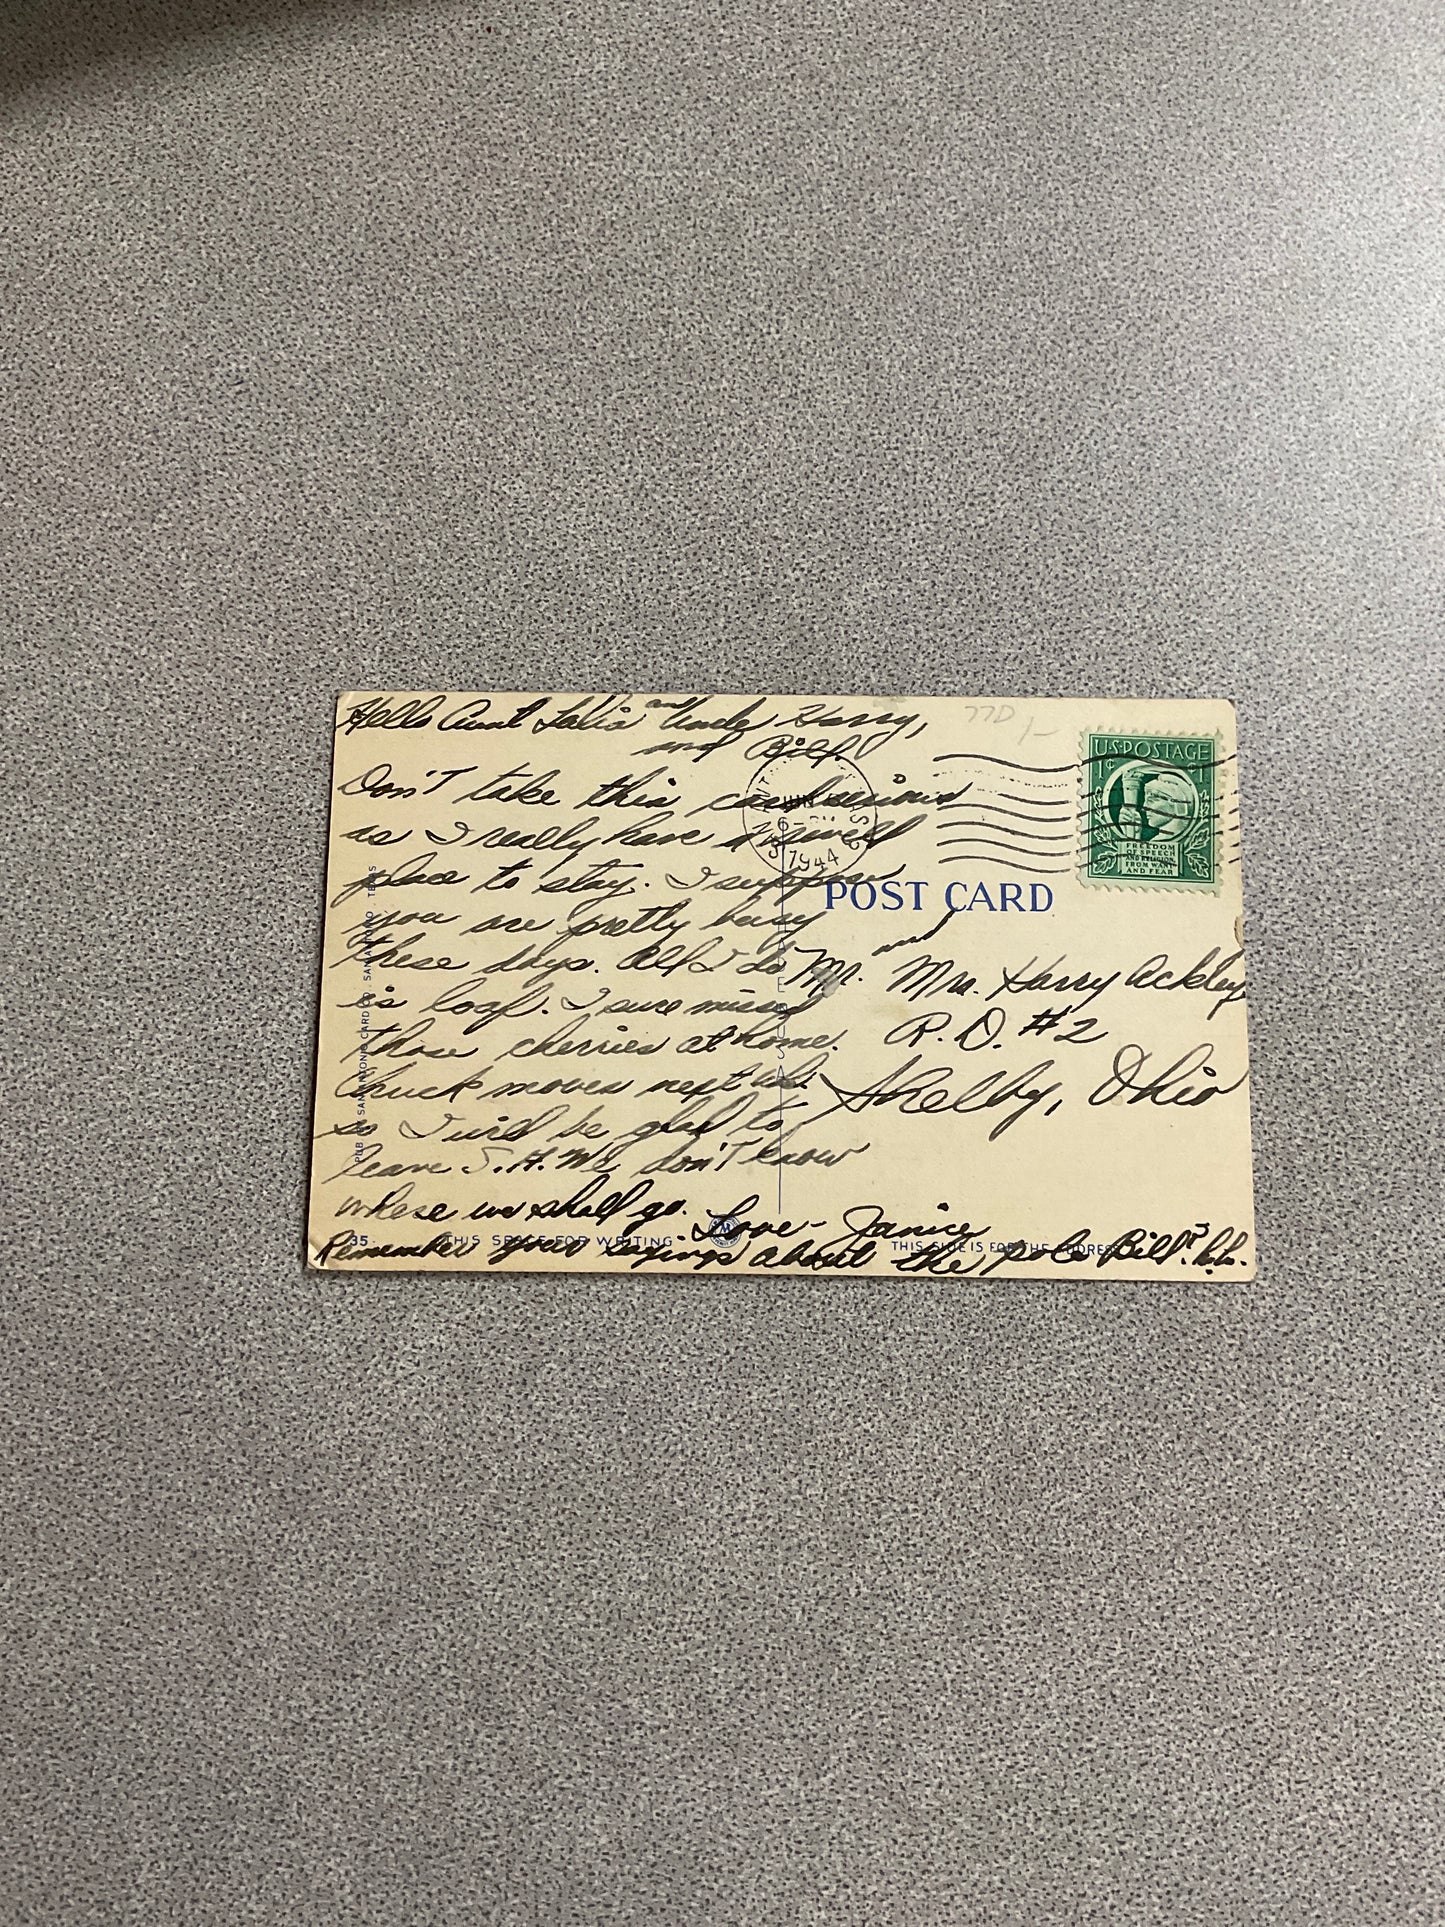 Hello Aunt and Uncle Harry,
and Bill.
Don't take this card serious
as I really have a swell
place to stay. I suppose
you are pretty busy
these days. All I do
is loaf. I sure missed
those cherries at home.
Chuck moves next wk.
so I will be glad to
leave S. A. We don't know
where we shall go.
Love - Janice
Remember your sayings about the pole Bill? ha. ha.
77D 1-
JUN
1944
U.S. POSTAGE
1¢ 1¢
FREEDOM
OF SPEECH
AND RELIGION,
FROM WANT
AND FEAR
POST CARD
Mr. and Mrs. Harry Ackley
R. D. #2
Shelby, Ohio
PUB BY SAN ANTONIO CARD CO., SAN ANTONIO, TEXAS
35
THIS SPACE FOR WRITING
THIS SIDE IS FOR THE ADDRESS